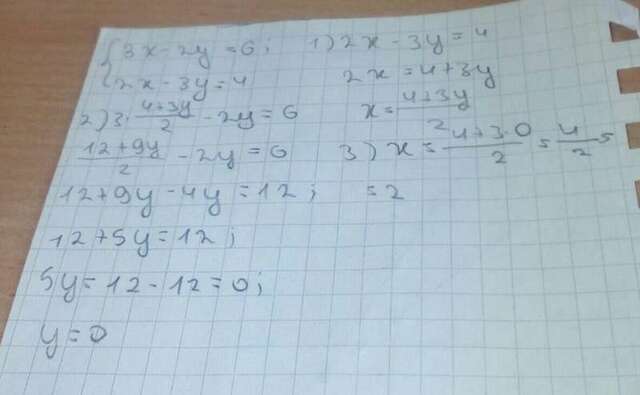 {3x - 2y = 6;
2x - 3y = 4
1) 2x - 3y = 4
2x = 4 + 3y
x = (4 + 3y)/2
2) 3 · (4 + 3y)/2 - 2y = 6
(12 + 9y)/2 - 2y = 6
12 + 9y - 4y = 12;
12 + 5y = 12;
5y = 12 - 12 = 0;
y = 0
3) x = (4 + 3 · 0)/2 = 4/2 =
= 2